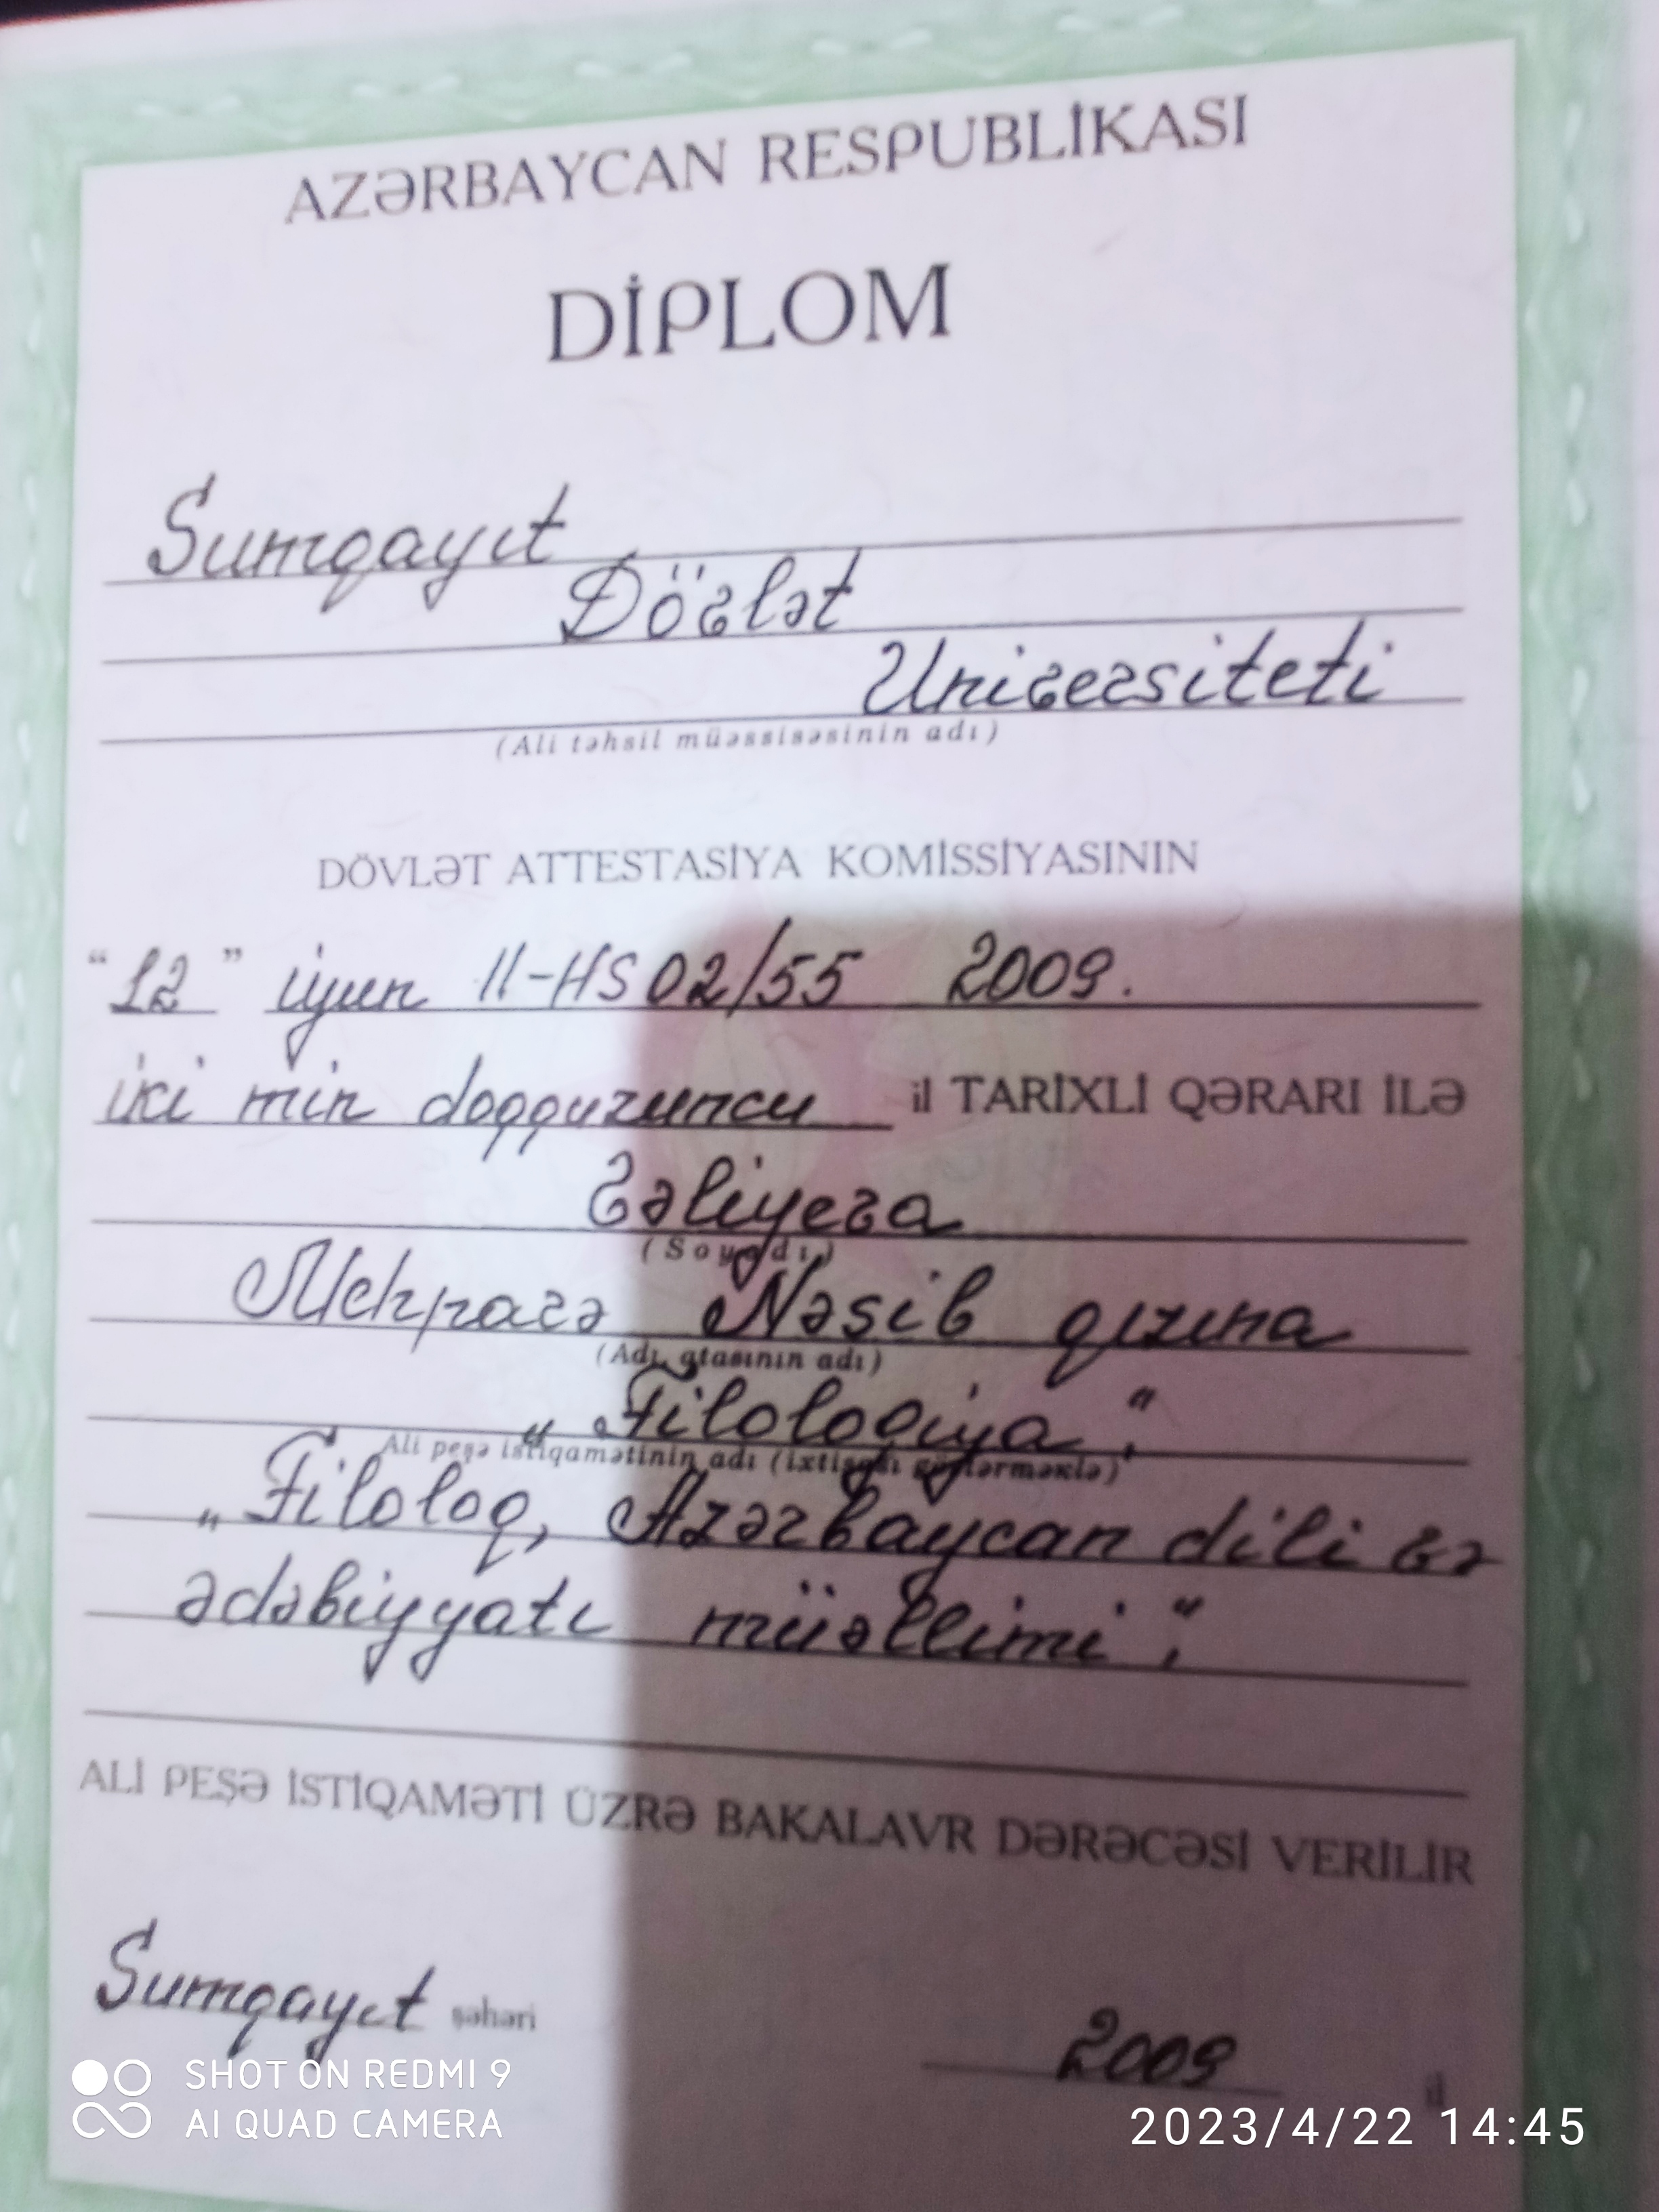 AZƏRBAYCAN RESPUBLİKASI
DİPLOM
Sumqayıt
Dövlət
Universiteti
(Ali təhsil müəssisəsinin adı)
DÖVLƏT ATTESTASİYA KOMİSSİYASININ
"12" iyun 11-HS 02/55 2009.
iki min doqquzuncu il TARİXLİ QƏRARI İLƏ
Vəliyeva
(Soyadı)
Mehparə Nəsib qızına
(Adı, atasının adı)
„Filologiya."
Ali peşə istiqamətinin adı (ixtisası göstərməklə)
„Filoloq, Azərbaycan dili və
ədəbiyyatı müəllimi."
ALİ PEŞƏ İSTİQAMƏTİ ÜZRƏ BAKALAVR DƏRƏCƏSİ VERİLİR
Sumqayıt şəhəri
2009 il
SHOT ON REDMI 9
AI QUAD CAMERA
2023/4/22 14:45